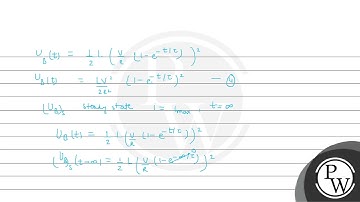 U_B(t) = 1/2 L (V/R (1-e^{-t/τ}))^2
U_B(t) = LV^2/2R^2 (1-e^{-t/τ})^2 —
(U_B)_s steady state i = i_max, t=∞
U_B(t) = 1/2 L (V/R (1-e^{-t/τ}))^2
(U_B)_s (t→∞) = 1/2 L (V/R (1-e^{-∞/τ}))^2
PW